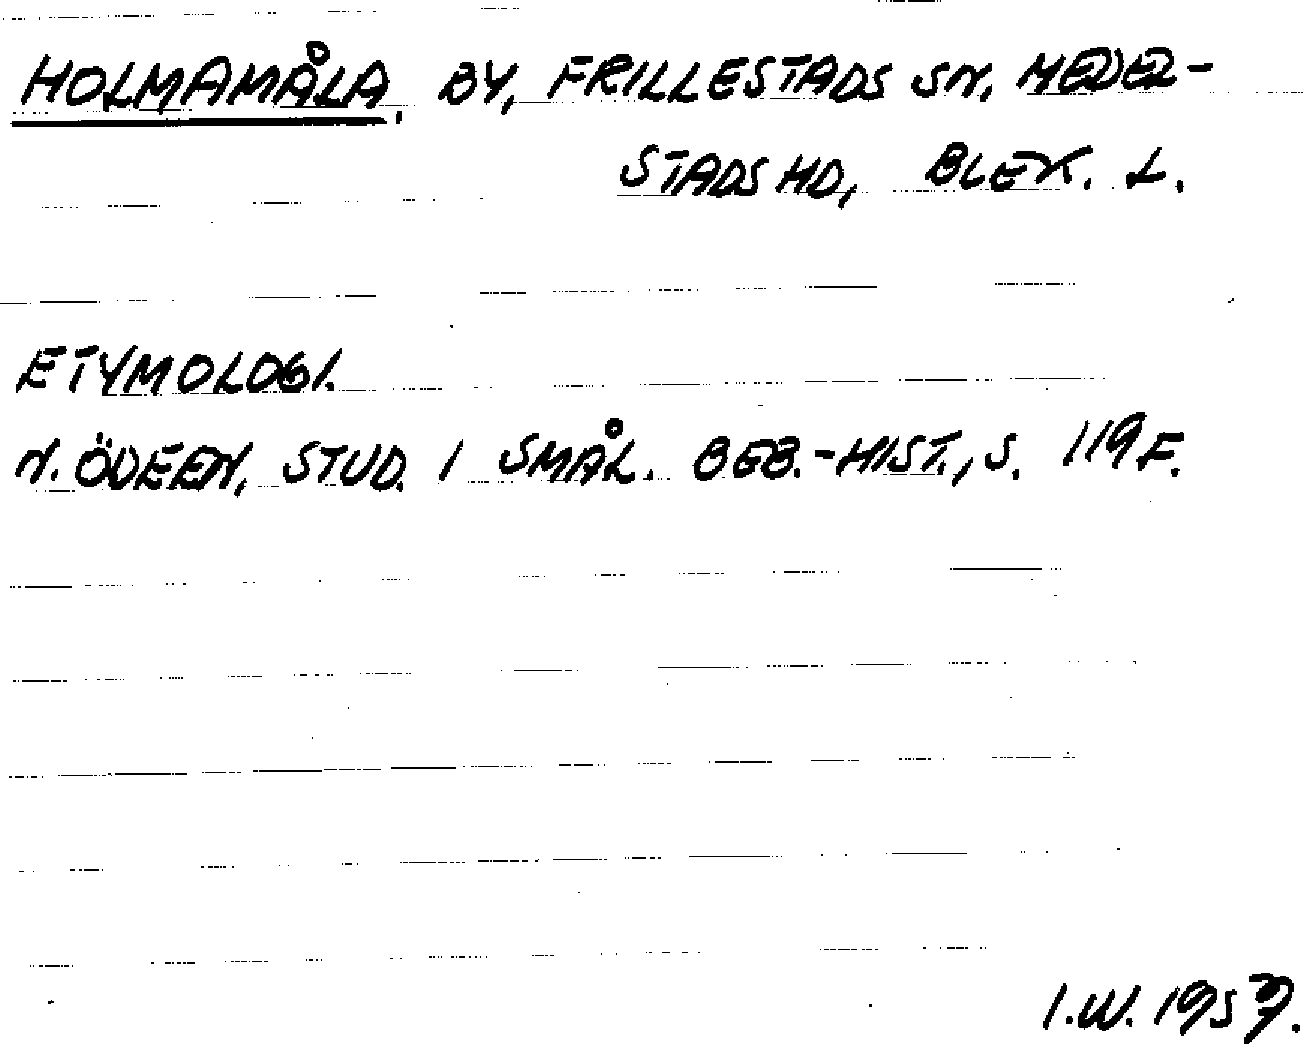 HOLMAMÅLA, BY, FRILLESTADS SN, MEDEL-
STADS HD, BLEK. L.
ETYMOLOGI.
N. ÖDEEN, STUD. I SMÅL. BEB.-HIST., S. 119 F.
I.W. 1957.